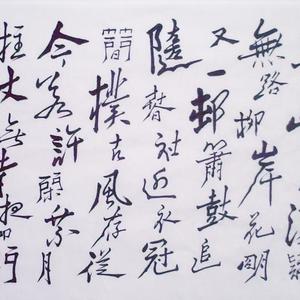 山
無路柳岸花明
又一邨簫鼓追
隨春社近衣冠
簡樸古風存從
今若許閒乘月
拄杖無時夜叩門